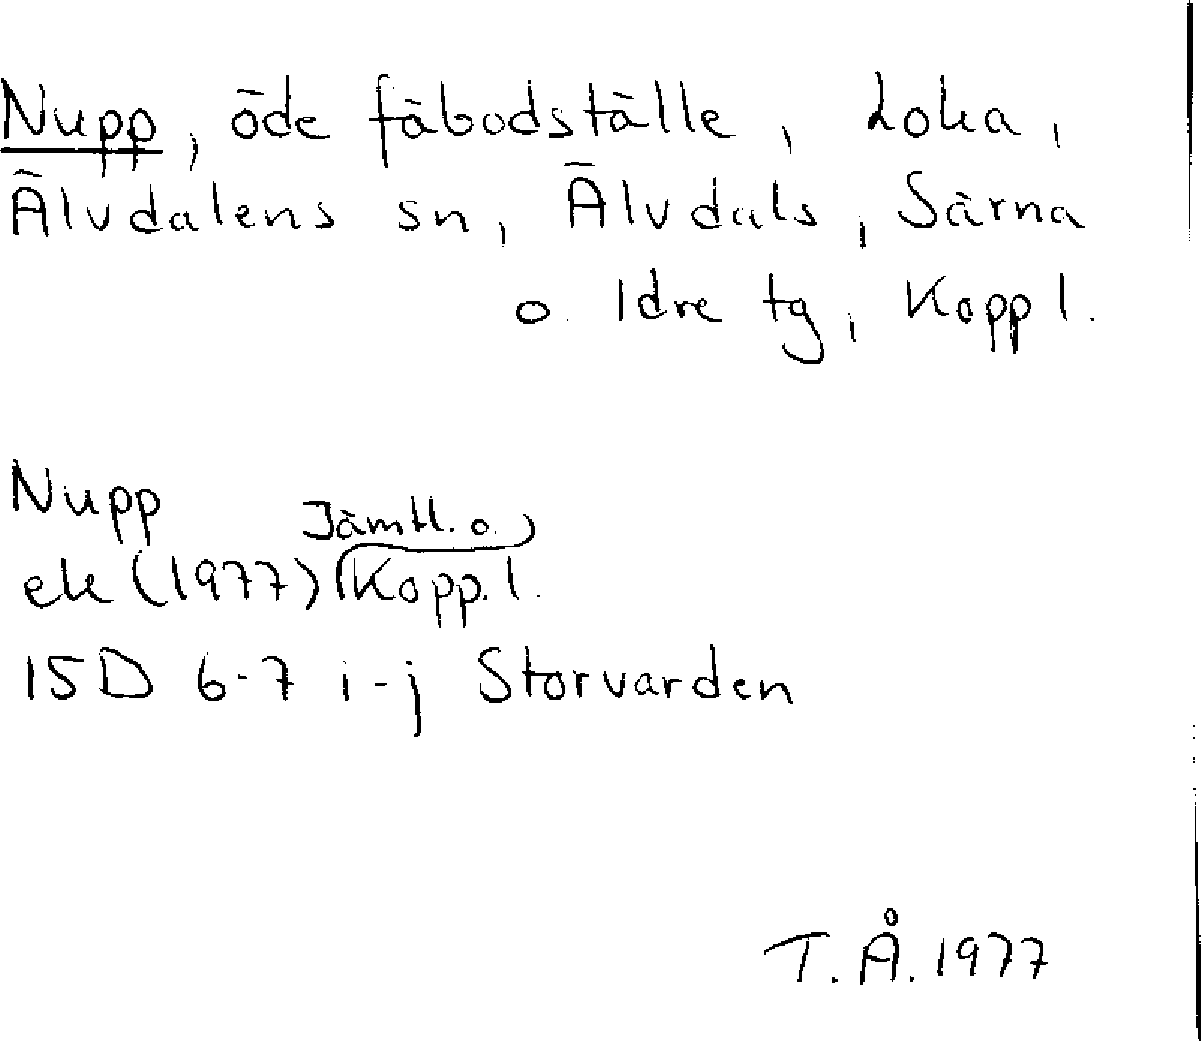 Nupp, öde fäbodställe, Loka,
Älvdalens sn, Älvdals, Särna
o. Idre tg, Kopp l.
Nupp
Jämtl. o.
ek (1977) Kopp. l.
15D 6-7 i-j Storvarden
T.Å. 1977